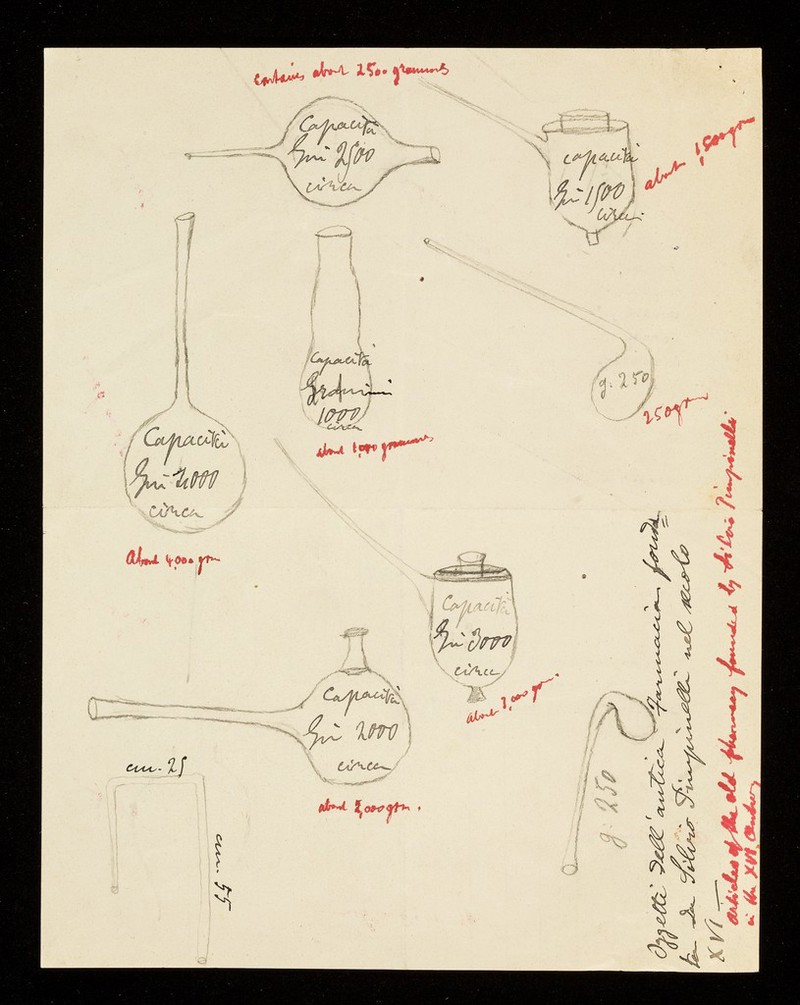 contains about 2500 grammes
Capacità
Gmi 2500
circa
capacità
Gmi 1500
circa
about 1,500 grm
Capacità
Grammi
1000
circa
about 1,000 grammes
g: 250
250 grm
Capacità
Gmi 4000
circa
About 4,000 grm
Capacità
Gmi 3000
circa
about 3,000 grm.
Capacità
Gmi 2000
circa
about 2,000 grm.
cm. 25
cm. 55
g: 250
Oggetti dell'antica Farmacia fonda=
ta da Silvio Pimpinelli nel secolo
XVI —
articles of the old pharmacy founded by Silvio Pimpinelli
in the XVI Century